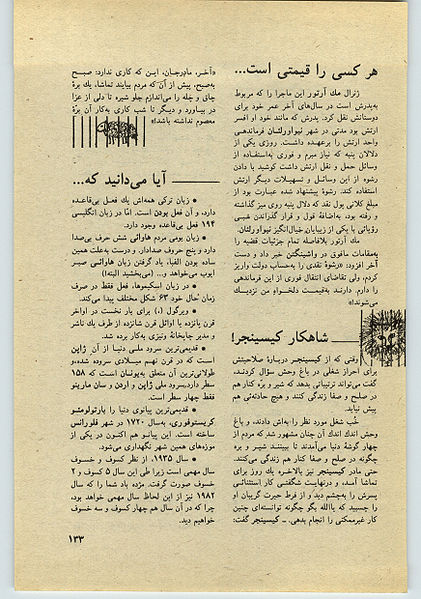 هر کسی را قیمتی است...
ژنرال مك آرتور این ماجرا را که مربوط
به‌پدرش است در سال‌های آخر عمر خود برای
دوستانش نقل کرد. پدرش که مانند خود او افسر
ارتش بود مدتی در شهر نیواورلئان فرماندهی
واحد ارتش را برعهده داشت. روزی یکی از
دلالان پنبه که نیاز مبرم و فوری به‌استفاده از
وسائل حمل و نقل ارتش داشت کوشید با دادن
رشوه از این وسائل و تسهیلات دیگر ارتش
استفاده کند. رشوهٔ پیشنهاد شده عبارت بود از
مبلغ کلانی پول نقد که دلال پنبه روی میز گذاشته
و رفته بود، به‌اضافهٔ قول و قرار گذراندن شبی
رؤیائی با یکی از زیبایان خیال‌انگیز نیواورلئان.
مك آرتور بلافاصله تمام جزئیات قضیه را
به‌مقامات مافوق در واشینگتن خبر داد و دست
آخر افزود: «رشوهٔ نقدی را به‌حساب دولت واریز
کردم، ولی تقاضای انتقال فوری از این فرماندهی
را دارم. دارند به‌قیمت دلخواهِ من نزدیك
می‌شوند!»
شاهکار کیسینجر!
وقتی که از کیسینجر دربارهٔ صلاحیتش
برای احراز شغلی در باغ وحش سؤال کردند،
گفت می‌تواند ترتیباتی بدهد که شیر و برّه کنار هم
در صلح و صفا زندگی کنند و هیچ حادثه‌ئی هم
پیش نیاید.
خُب شغل مورد نظر را به‌اش دادند، و باغ
وحش اندك اندك آن چنان مشهور شد که مردم از
چهار گوشهٔ دنیا می‌آمدند تا ببینند شیر و بره
چگونه در صلح و صفا کنار هم زندگی می‌کنند.
حتی مادر کیسینجر نیز بالاخره یك روز برای
تماشا آمد، و درنهایت شگفتی کار استثنائی
پسرش را به‌چشم دید و از فرط حیرت گریبان او
را چسبید که یاالله بگو چگونه توانسته‌ای چنین
کار غیرممکنی را انجام بدهی. ـ کیسینجر گفت:
«آخر، مادرجان، این که کاری ندارد: صبح
به‌صبح، پیش از آن که مردم بیایند تماشا، یك برهٔ
چاق و چله را می‌اندازم جلو شیره تا دلی از عزا
در بیاورد و دیگر تا شب کاری به‌کار آن برّهٔ
معصوم نداشته باشد!»
آیا می‌دانید که...
● زبان ترکی همه‌اش یك فعل بی‌قاعده
دارد، و آن فعل بودن است. امّا در زبان انگلیسی
۱۹۴ فعل بی‌قاعده وجود دارد.
● زبان بومی مردم هاوائی شش حرف بی‌صدا
دارد و پنج حرف صدادار، و درست به‌علت همین
ساده بودن الفبا، یاد گرفتن زبان هاوائی صبر
ایوب می‌خواهد و... (می‌بخشید البته!)
● در زبان اسکیموها، فعل فقط در صرف
زمان حال خود ۶۳ شکل مختلف پیدا می‌کند.
● ویرگول (،) برای بار نخست در اواخر
قرن پانزده یا اوائل قرن شانزده از طرف یك ناشر
و مدیر چاپخانهٔ ونیزی به‌کار برده شد.
● قدیمی‌ترین سرود ملی دنیا از آن ژاپن
است که در قرن نهم میلادی سروده شده، و
طولانی‌ترین آن متعلق به‌یونان است که ۱۵۸
سطر دارد. سرود ملی ژاپن و اردن و سان مارینو
فقط چهار سطر است.
● قدیمی‌ترین پیانوی دنیا را بارتولومئو
کریستوفوری، به‌سال ۱۷۲۰ در شهر فلورانس
ساخته است. این پیانو هم اکنون در یکی از
موزه‌های همین شهر نگهداری می‌شود.
● سال ۱۹۳۵، از نظر کسوف و خسوف
سال مهمی است زیرا طی این سال ۵ کسوف و ۲
خسوف صورت گرفت. مژده باد شما را که سال
۱۹۸۲ نیز از این لحاظ سال مهمی خواهد بود،
چرا که در آن سال هم چهار کسوف و سه خسوف
خواهیم دید.
۱۳۳